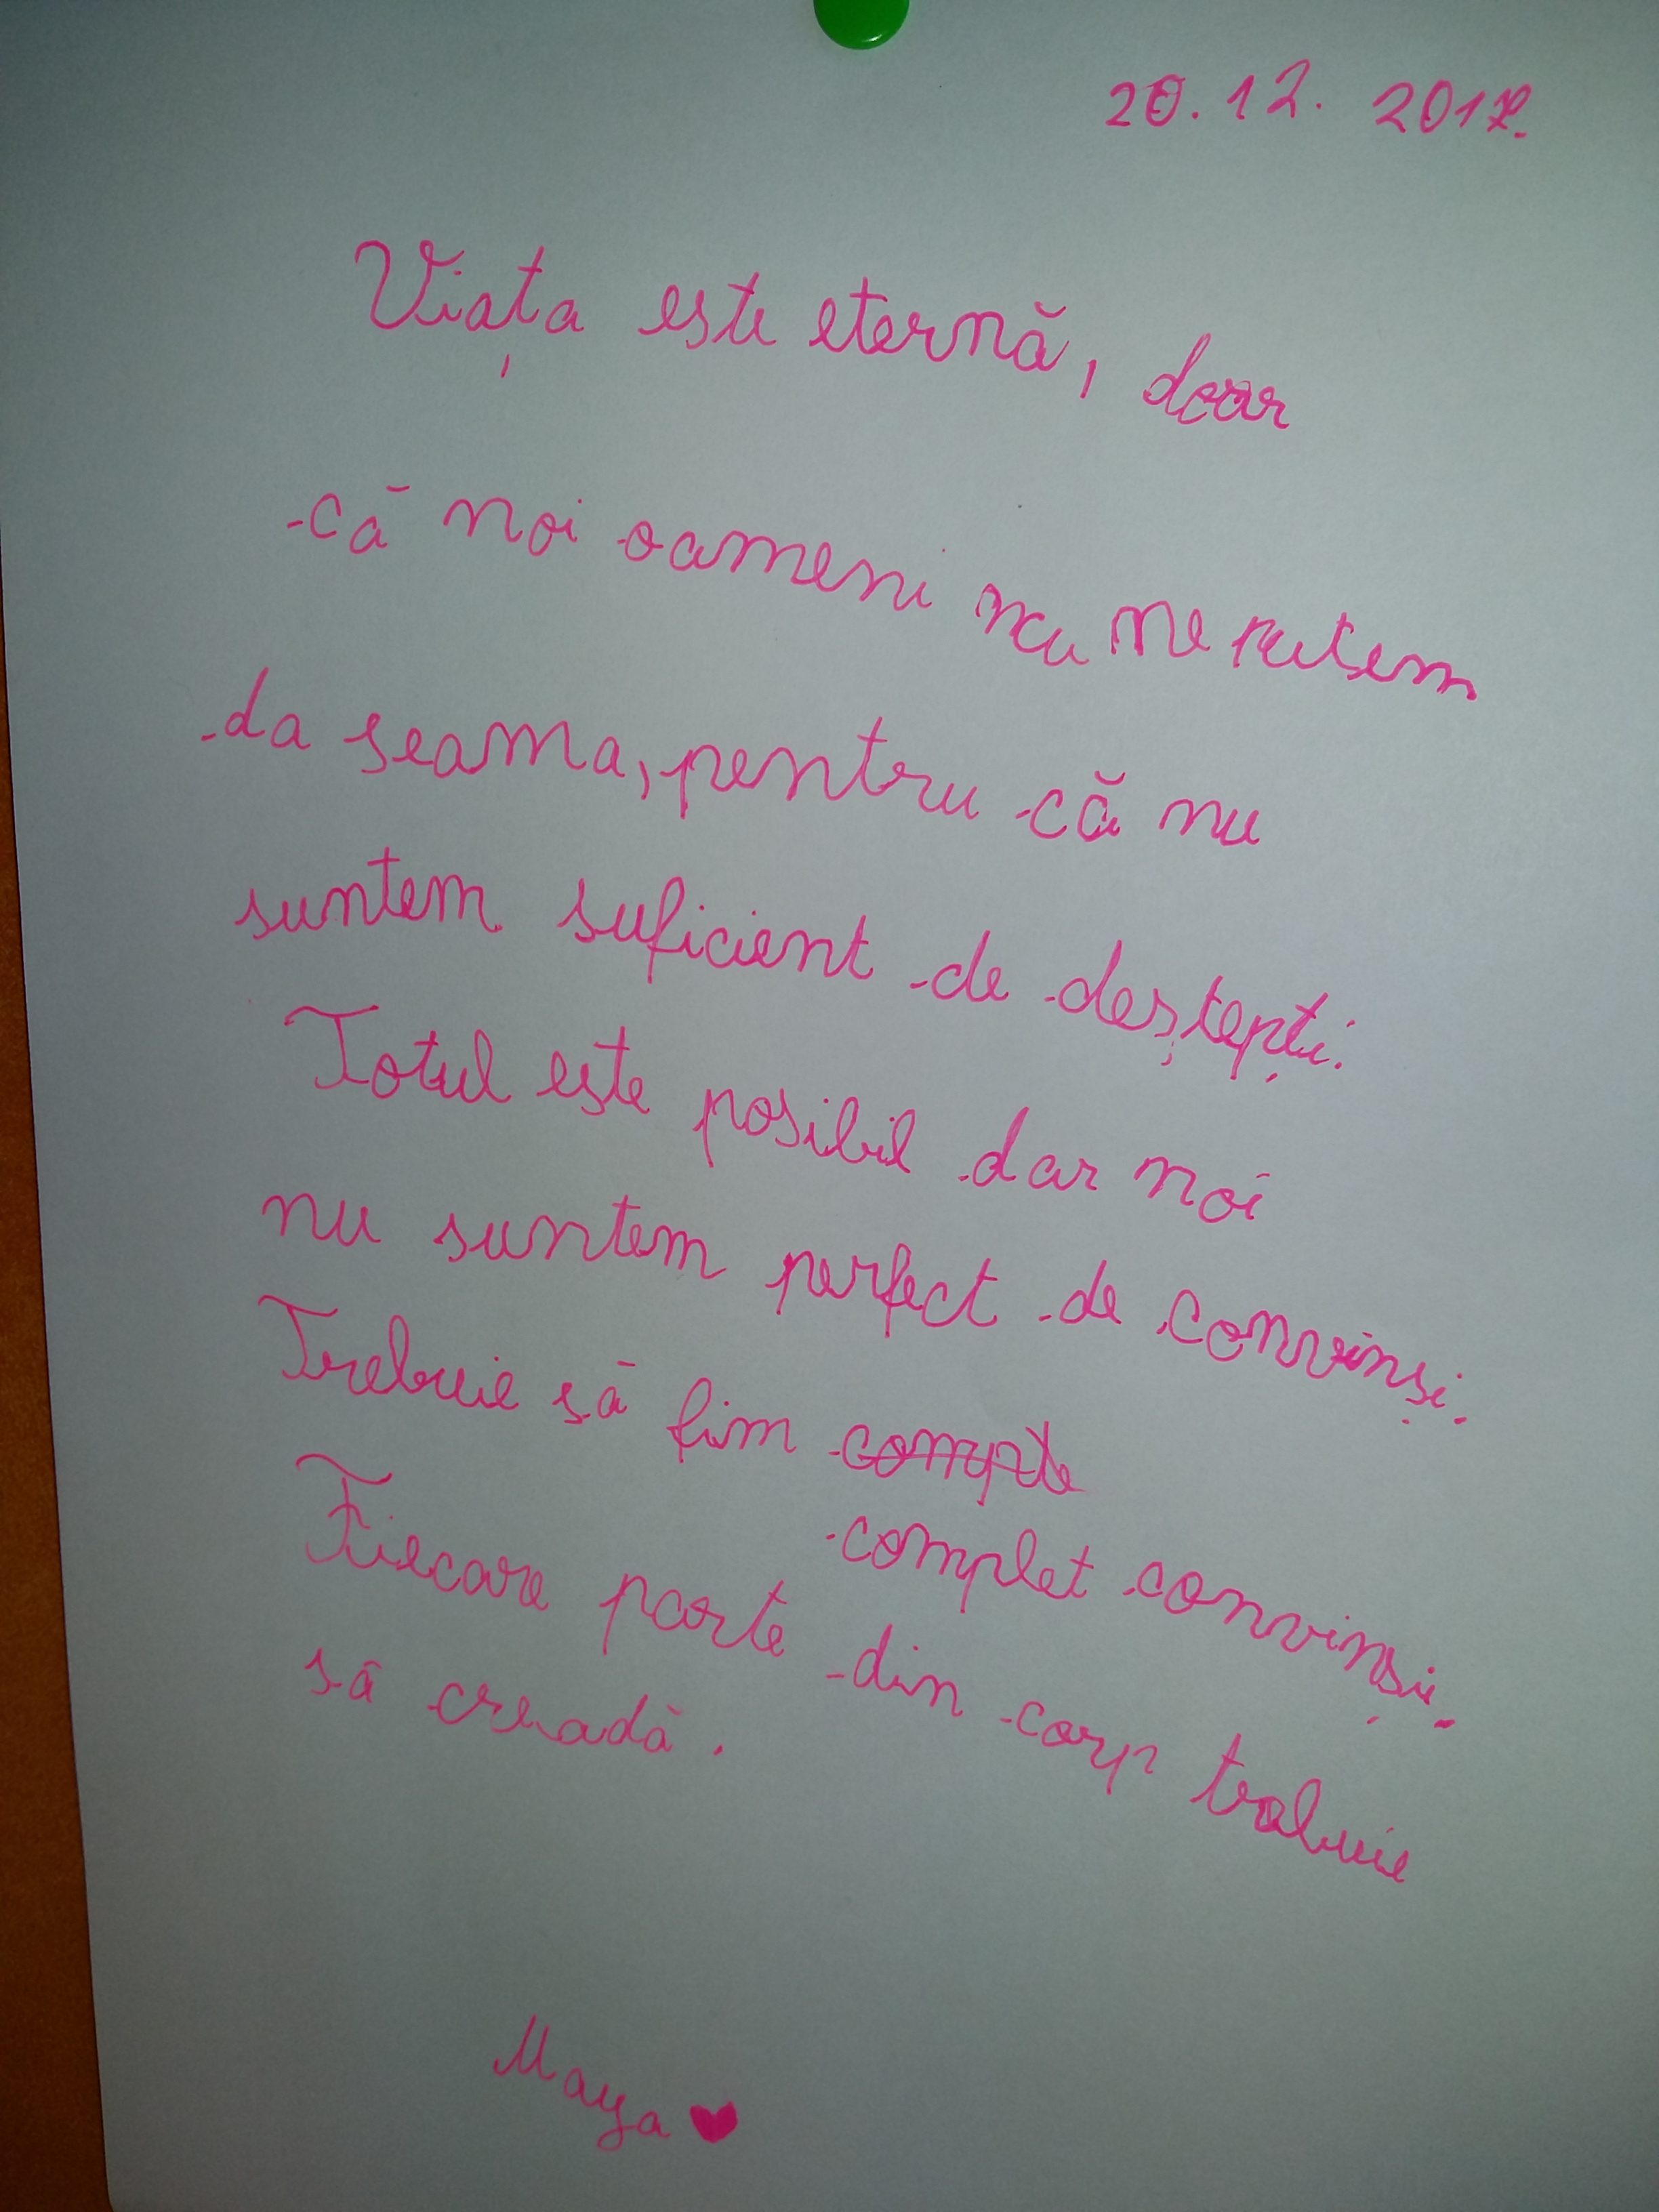 20.12.2017.
Viața este eternă, doar
că noi oameni nu ne putem
da seama, pentru că nu
suntem suficient de deștepți.
Totul este posibil dar noi
nu suntem perfect de convinși.
Trebuie să fim compte
complet convinși.
Fiecare parte din corp trebuie
să creadă.
Maya ♥